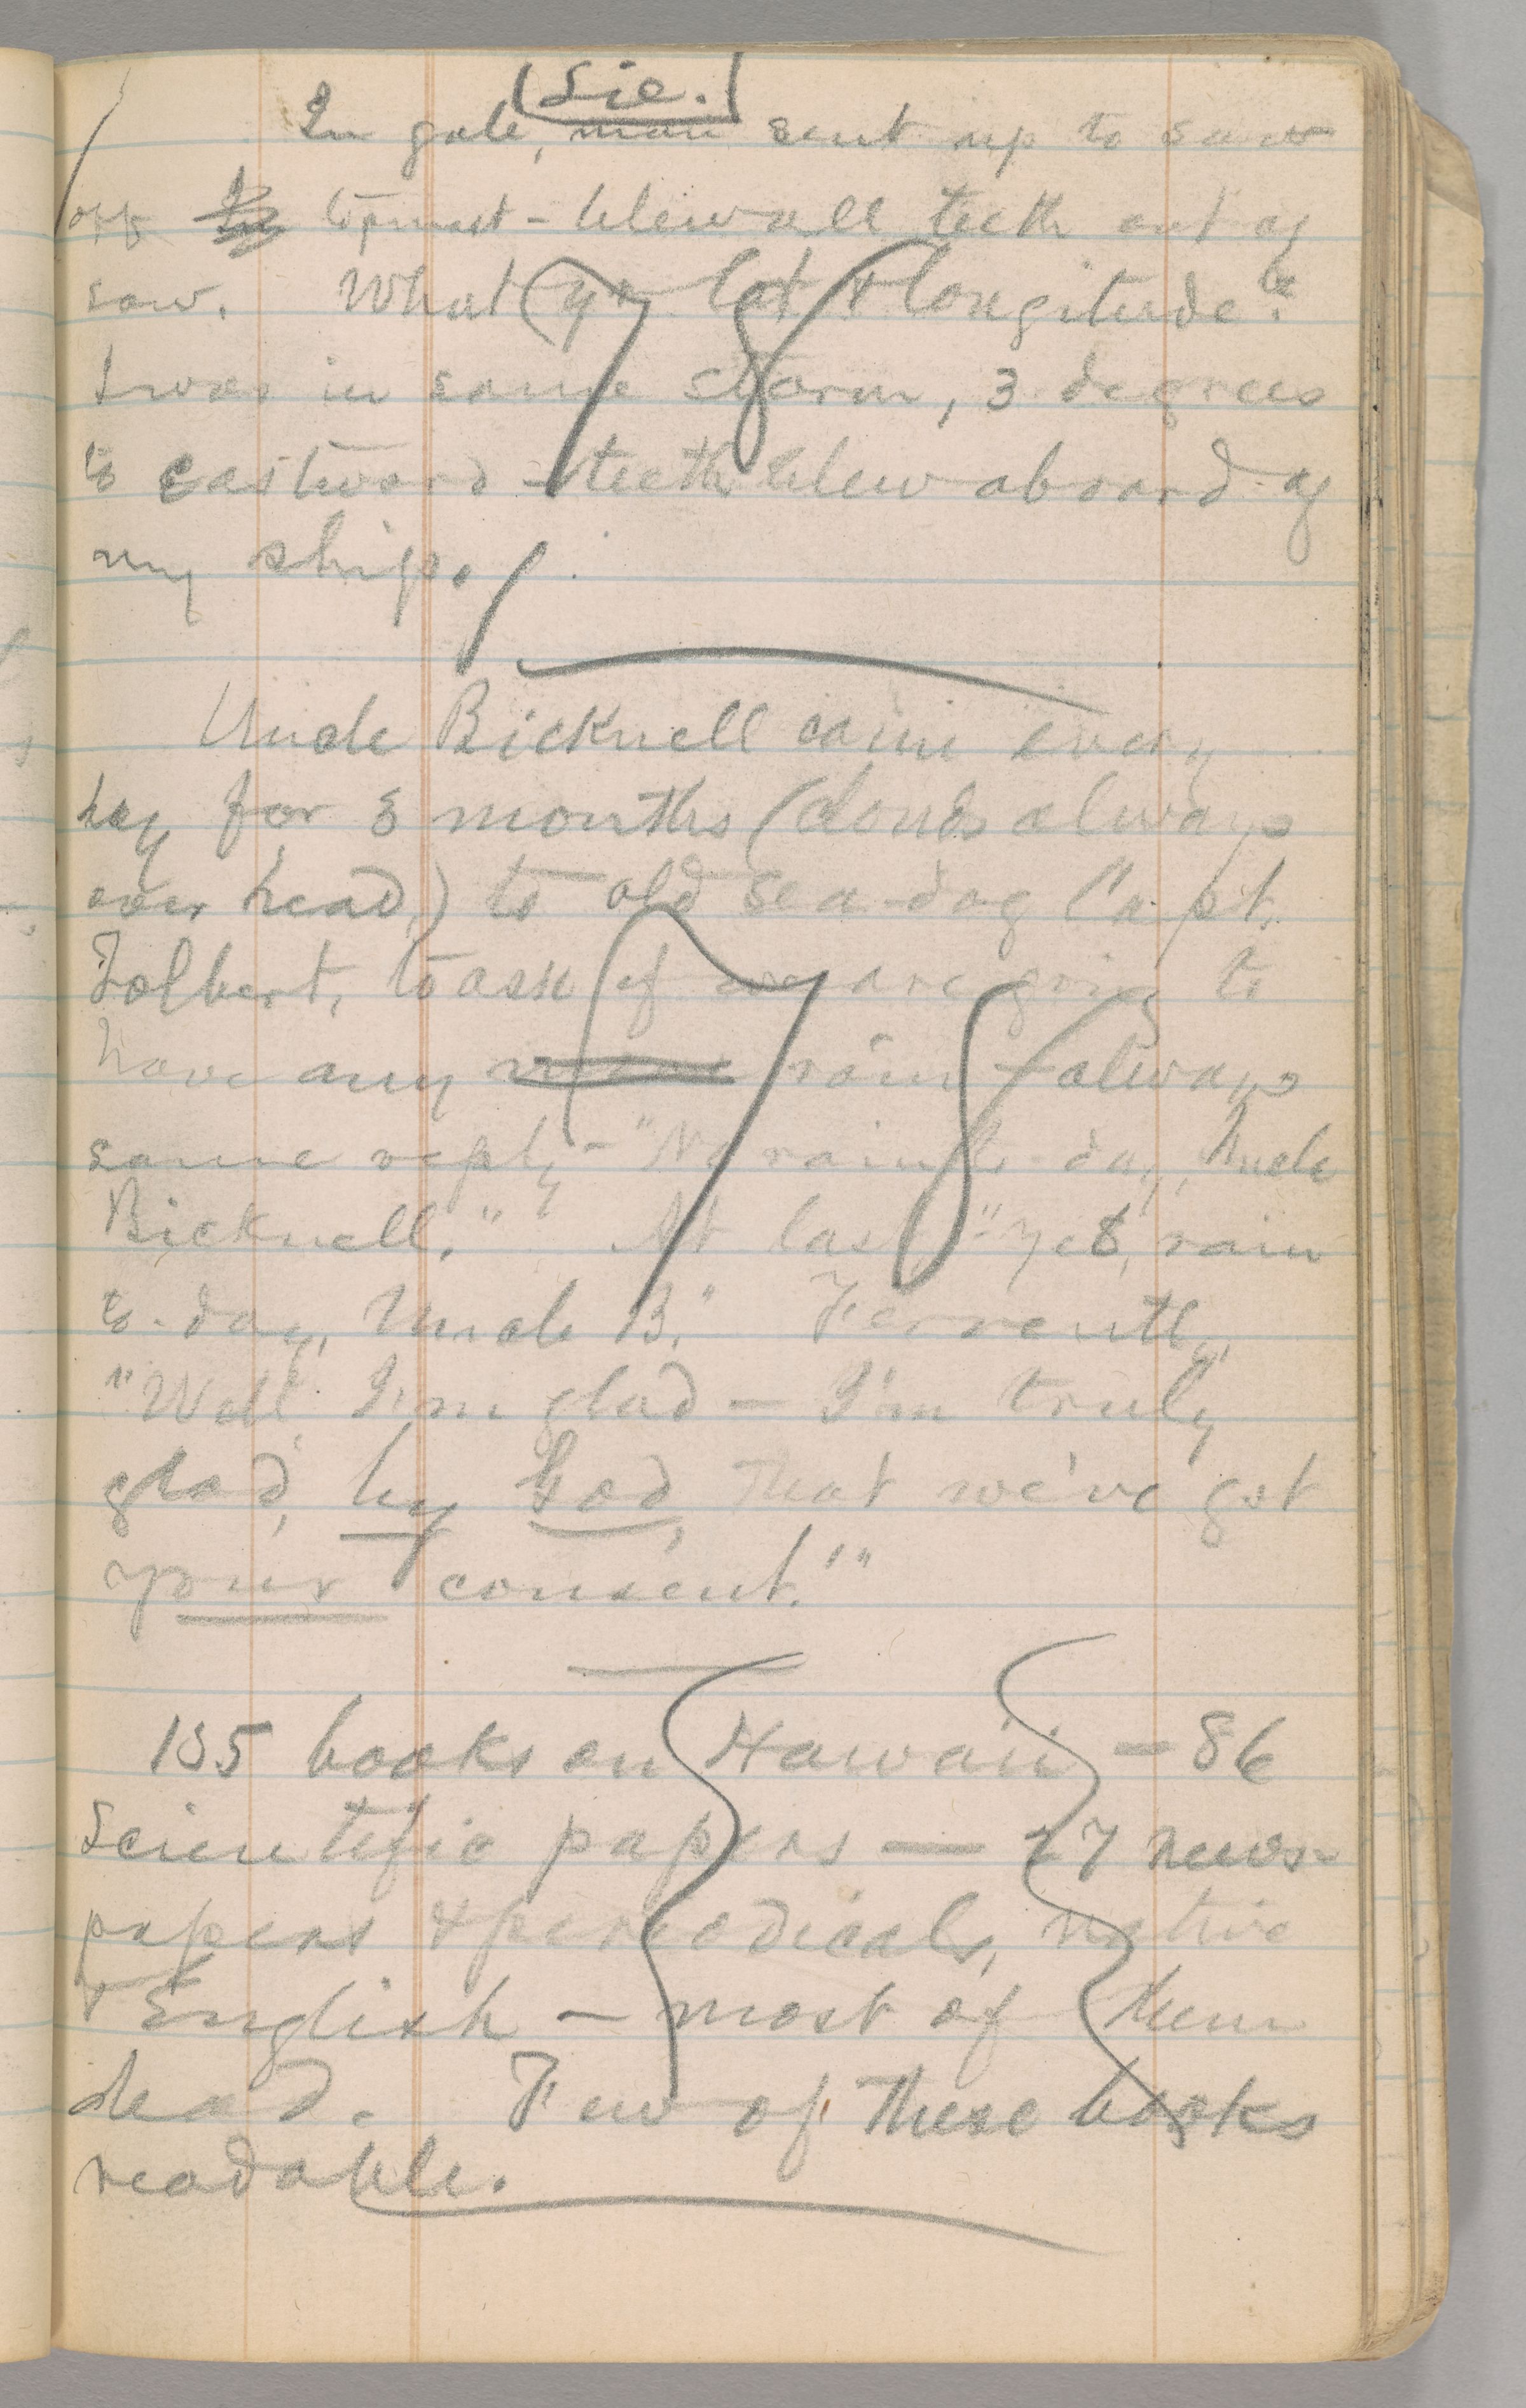 (Lie.)
In gale, man sent up to saw
off topmast - blew all teeth out of
saw. What yr lat & longitude?"
I was in same storm, 3 degrees
to eastward - teeth blew aboard of
my ship.
78
Uncle Bicknell came every
day for 3 months (clouds always
over head,) to old sea-dog Capt.
Folbert, to ask if we are going to
have any rain - always
same reply - "No rain to-day, Uncle
Bicknell." At last "Yes, rain
to-day, Uncle B." Fervently,
"Well, I'm glad — I'm truly
glad, by God, that we've got
your consent.'"
78
135 books on Hawaii — 86
scientific papers — 27 news-
papers & periodicals, native
& English — most of them
dead. Few of these books
readable.